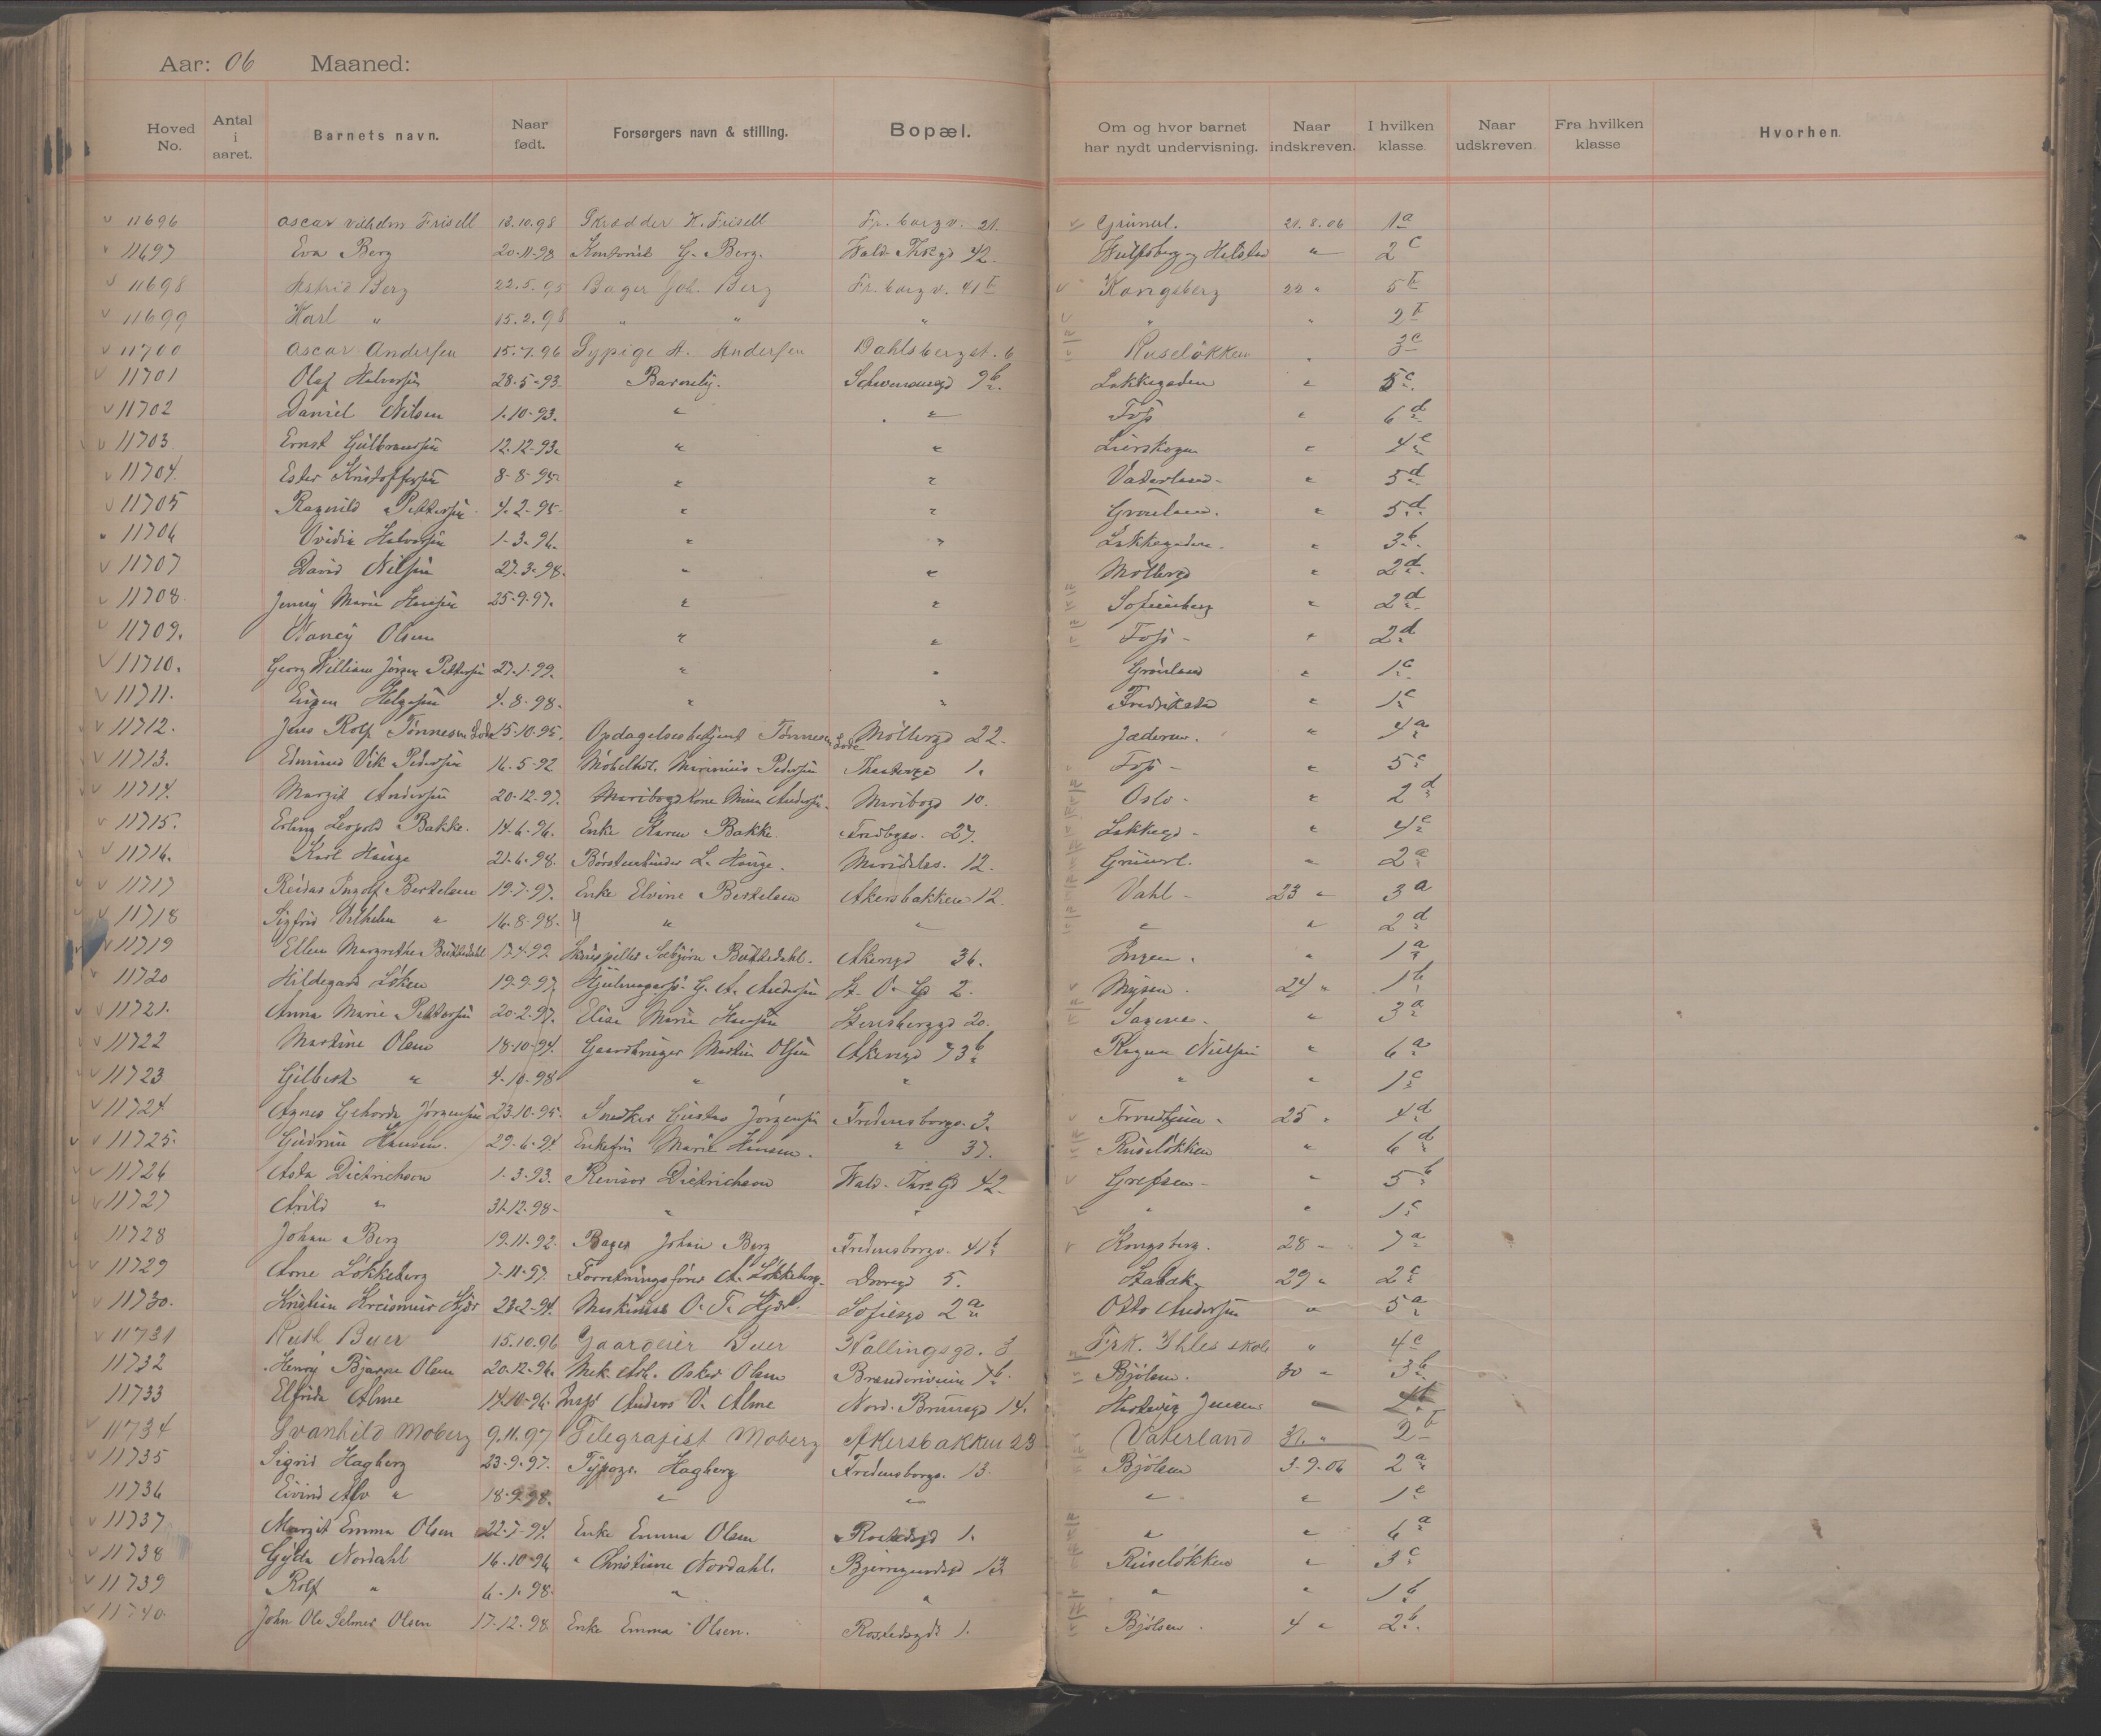 Aar: 06 Maaned:
Hoved No. Antal i aaret. Barnets navn. Naar født. Forsørgers navn & stilling. Bopæl. Om og hvor barnet har nydt undervisning. Naar indskreven. I hvilken klasse. Naar udskreven. Fra hvilken klasse Hvorhen.
11696 Oscar Vilhelm Frisell 13.10.98 Skrædder K. Frisell Fr. borgv. 21. Grünerl. 21.8.06 1a
11697 Eva Berg 20-11-98 Kontorist G. Berg. Wald. Thr.gd 42. og " 2c
11698 Astrid Berg 22.5.95 Bager Joh. Berg Fr. borgv. 41b Kongsberg 22 " 5b
11699 Karl " 15.2.98 " " " " " 2b
11700 Oscar Andersen 15.7.96 A. Andersen Dahlsbergst. 6 Ruseløkken " 3c
11701 Olaf Halvorsen 28-5-93. Barnehj. Schwensensgd 9b. Lakkegaden " 5c.
11702 Daniel Nilsen 1.10-93. " " Foss " 6d
11703 Ernst Gulbrandsen 12.12-93. " " Lierskogen " 4c
11704. Ester Kristoffersen 8-8-95. " " Vaterland - " 5d
11705 Ragnild Pettersen 4.2-95. " " Grønland. " 5d.
11706 Ovidia Halvorsen 1-3-96. " " Lakkegaden. " 3b.
11707 David Nilsen 27.3-98. " " Møllergd " 2d.
11708. Jenny Marie Hansen 25-9-97. " " Sofienberg " 2d
11709. Nancy Olsen " " Foss - " 2d
11710. Georg William Jörgen Pettersen 27.1.99. " " Grønland " 1c
11711. Eugen Helgesen 4.8-98. " " Fredrikstad " 1c
11712. Jens Rolf Tønnesen Lode 15-10-95. Opdagelsesbetjent Tønnesen Lode Møllergd 22. Jæderen. " 4a
11713. Edmund Vik Pedersen 16.5-92 Møbelhdl. Marinius Pedersen Theatergd 1. Foss - " 5c
11714. Margit Andersen 20-12-97. Kone Mina Andersen. Maribogd 10. Oslo - " 2d
11715. Erling Leopold Bakke. 14-6-96. Enke Karen Bakke. Fredbgsv. 27. Lakkegd - " 4c
11716. Karl Hauge 21-6-98. Børstenbinder L. Hauge. Maridalsv. 12. Grünerl. " 2a
11717 Reidar Ingolf Bertelsen 19.7-97. Enke Elvine Bertelsen Akersbakken 12. Vahl - 23 " 3a
11718 Sigfrid Vilhelm " 16.8-98. " " " " 2d
11719 Ellen Margrethe Buttedahl 17.4.99 Skuespiller Buttedahl. Akersgd 36. Ingen. " 1a
11720 Hildegard Løken 19.9-97. G. A. Andersen St. O. Gd 2. Mysen. 24 " 1b
11721. Anna Marie Pettersen 20-2-97. Elise Marie Hansen Stensberggd 20. Sagene. " 3a
11722 Martine Olsen 18-10-94. Gaardbruger Martin Olsen Akersgd 73b Ragna Nielsen " 6a
11723 Gilbert " 4-10-98 " " " " 1c
11724 Agnes Gehorda Jørgensen 23.10-95. Snedker Gustav Jørgensen Fredensborgv. 3. Trondhjem. 25 " 4d
11725. Gudrun Hansen. 29-6-94. Enkefru Marie Hansen. " 37. Ruseløkken " 6d
11726 Asta Dietrichson 1-3-93. Revisor Dietrichson Wald. Thrs Gd 42. Grefsen - " 5b
11727 Arild " 31.12.98- " " " " 1c
11728 Johan Berg 19.11-92. Bager Johan Berg Fredensborgv. 41b Kongsberg. 28 - 7a
11729 Arne Løkkeberg 7-11-97. Forretningsfører A. Løkkeberg. Dovregd 5. Stabæk 29 " 2c
11730. Kristian Hjør 23.2-94. Maskinist O. T. Hjør. Sofiesgd 2a Otto Andersen " 5a
11731 Ruth Buer 15.10.96 Gaardeier Buer Hallingsgd. 3 Frk. Ihles skole " 4c
11732 Henry Bjarne Olsen 20-12-96. Mek. Arb. Oskar Olsen 7b. Bjølsen. 30 " 3b
11733 Elfrida Alme 14.10-96. Insp. Anders V. Alme Nord. Brunsgd 14. Hartvig Jensen " 2b
11734 Svanhild Moberg 9.11.97 Telegrafist Moberg Akersbakken 23 Vaterland 31. " 2b
11735 Sigrid Hagberg 23-9-97. Typogr. Hagberg Fredensborgv. 13. Bjølsen 3-9-06 2a
11736 Eivind Alv " 18-9-98. " " " " 1c
11737 Margit Emma Olsen 22.7-94. Enke Emma Olsen Rostedsgd 1. " " 6a
11738 Gylda Nordahl 16.10-96 " Christiane Nordahl. Bjerregaardsgd 13 Ruseløkken " 3c
11739 Rolf " 6.1.98. " " " " 1b
11740. John Ole Selmer Olsen 17-12.98 Enke Emma Olsen. Rostedsgd. 1. Bjølsen. 4 " 2b.